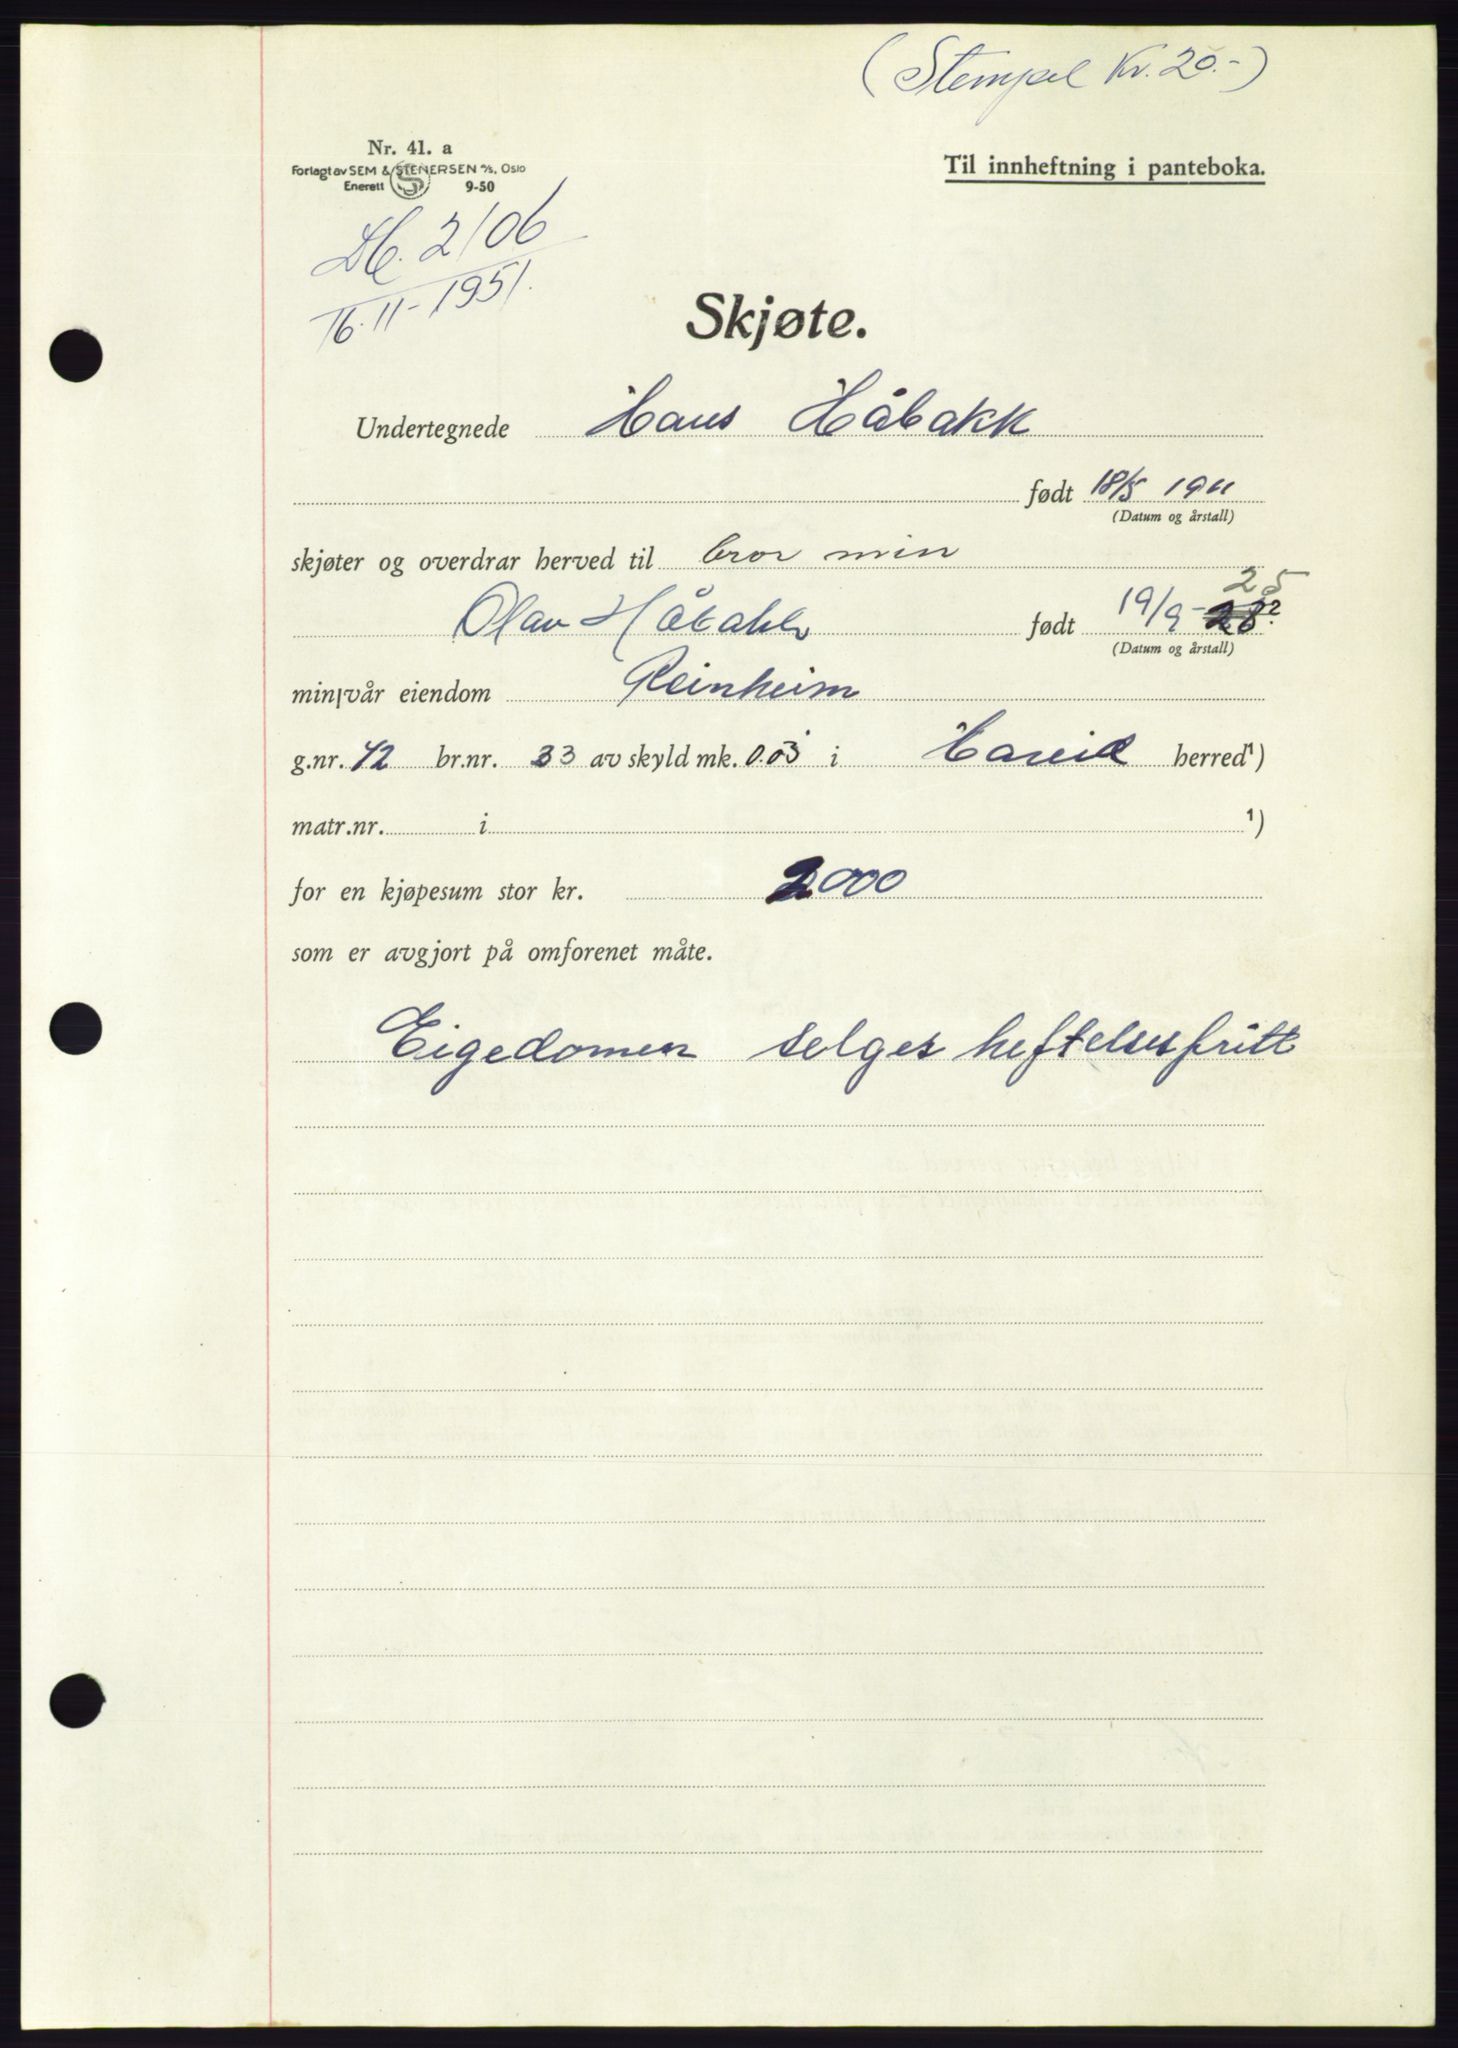 (Stempel Kr. 20.-)
Nr. 41. a
Forlagt av SEM & STENERSEN A/S, Oslo
Enerett 9-50
Til innheftning i panteboka.
Db. 2106
16.11-1951.
Skjøte.
Undertegnede Hans Håbakk
født 18/5 1911
(Datum og årstall)
skjøter og overdrar herved til bror min
25
Olav Håbakk født 19/9- 28?
(Datum og årstall)
min/vår eiendom Reinheim
g.nr. 42 br.nr. 33 av skyld mk. 0.03 i Hareid herred¹)
matr.nr. i ¹)
for en kjøpesum stor kr. 2000
som er avgjort på omforenet måte.
Eigedomen selges heftelsesfritt